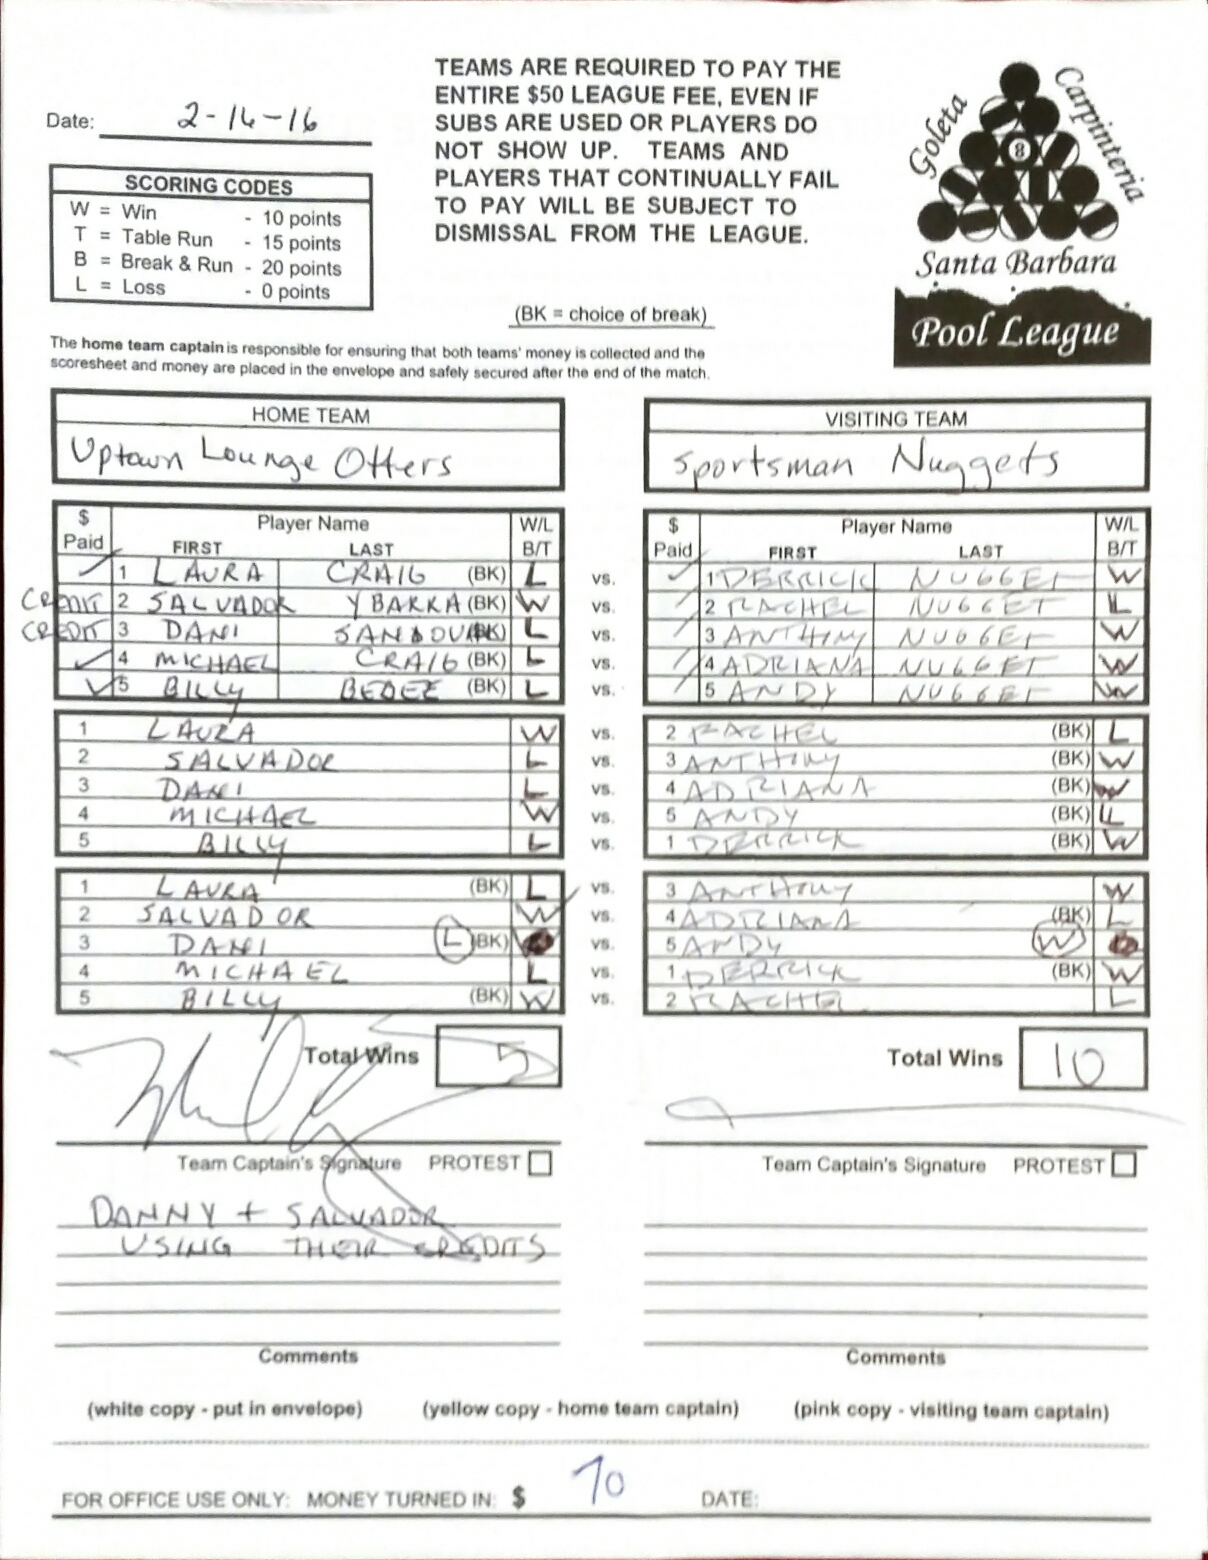 TEAMS ARE REQUIRED TO PAY THE
ENTIRE $50 LEAGUE FEE, EVEN IF
SUBS ARE USED OR PLAYERS DO
NOT SHOW UP. TEAMS AND
PLAYERS THAT CONTINUALLY FAIL
TO PAY WILL BE SUBJECT TO
DISMISSAL FROM THE LEAGUE.
Date: 2-16-16
SCORING CODES
W = Win - 10 points
T = Table Run - 15 points
B = Break & Run - 20 points
L = Loss - 0 points
Goleta
Carpinteria
8
Santa Barbara
Pool League
(BK = choice of break)
The home team captain is responsible for ensuring that both teams' money is collected and the
scoresheet and money are placed in the envelope and safely secured after the end of the match.
HOME TEAM
Uptown Lounge Otters
VISITING TEAM
Sportsman Nuggets
$ Paid Player Name W/L
FIRST LAST B/T
$ Paid Player Name W/L
FIRST LAST B/T
1 LAURA CRAIG (BK) L vs. 1 DERRICK NUGGET W
CREDIT 2 SALVADOR YBARRA (BK) W vs. 2 RACHEL NUGGET L
CREDIT 3 DANI SANDOVAL L vs. 3 ANTHONY NUGGET W
4 MICHAEL CRAIG (BK) L vs. 4 ADRIANA NUGGET W
5 BILLY (BK) L vs. 5 ANDY NUGGET W
1 LAURA W vs. 2 RACHEL (BK) L
2 SALVADOR L vs. 3 ANTHONY (BK) W
3 DANI L vs. 4 ADRIANA (BK) W
4 MICHAEL W vs. 5 ANDY (BK) L
5 BILLY L vs. 1 DERRICK (BK) W
1 LAURA (BK) L vs. 3 ANTHONY W
2 SALVADOR W vs. 4 ADRIANA (BK) L
3 DANI L (BK) vs. 5 ANDY W
4 MICHAEL L vs. 1 DERRICK (BK) W
5 BILLY (BK) W vs. 2 RACHEL L
Total Wins 5
Total Wins 10
Team Captain's Signature PROTEST
Team Captain's Signature PROTEST
DANNY + SALVADOR
USING THEIR CREDITS
Comments
Comments
(white copy - put in envelope) (yellow copy - home team captain) (pink copy - visiting team captain)
FOR OFFICE USE ONLY: MONEY TURNED IN: $ 70 DATE: